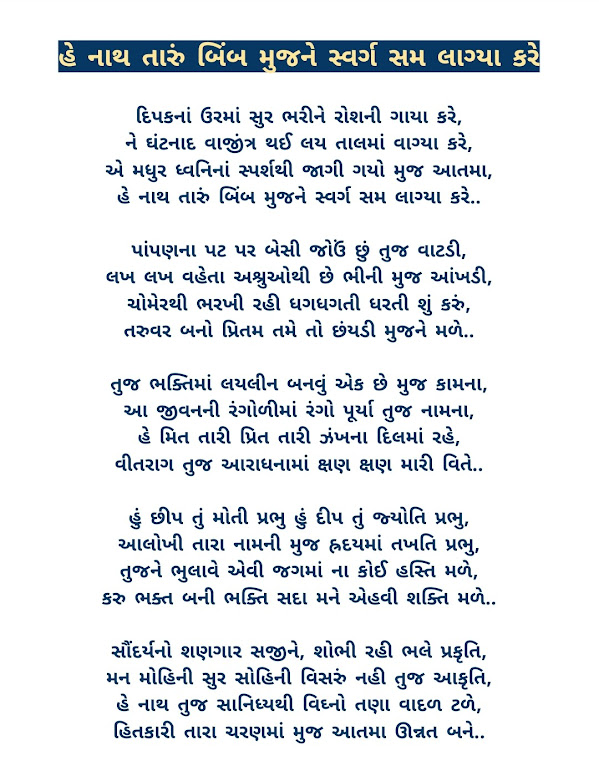 હે નાથ તારું બિંબ મુજને સ્વર્ગ સમ લાગ્યા કરે
દિપકનાં ઉરમાં સુર ભરીને રોશની ગાયા કરે,
ને ઘંટનાદ વાજીંત્ર થઈ લય તાલમાં વાગ્યા કરે,
એ મધુર ધ્વનિનાં સ્પર્શથી જાગી ગયો મુજ આતમા,
હે નાથ તારું બિંબ મુજને સ્વર્ગ સમ લાગ્યા કરે..
પાંપણના પટ પર બેસી જોઉં છું તુજ વાટડી,
લખ લખ વહેતા અશ્રુઓથી છે ભીની મુજ આંખડી,
ચોમેરથી ભરખી રહી ધગધગતી ધરતી શું કરું,
તરુવર બનો પ્રિતમ તમે તો છંયડી મુજને મળે..
તુજ ભક્તિમાં લયલીન બનવું એક છે મુજ કામના,
આ જીવનની રંગોળીમાં રંગો પૂર્યા તુજ નામના,
હે મિત તારી પ્રિત તારી ઝંખના દિલમાં રહે,
વીતરાગ તુજ આરાધનામાં ક્ષણ ક્ષણ મારી વિતે..
હું છીપ તું મોતી પ્રભુ હું દીપ તું જ્યોતિ પ્રભુ,
આલોખી તારા નામની મુજ હ્રદયમાં તખતિ પ્રભુ,
તુજને ભુલાવે એવી જગમાં ના કોઈ હસ્તિ મળે,
કરુ ભક્ત બની ભક્તિ સદા મને એહવી શક્તિ મળે..
સૌંદર્યનો શણગાર સજીને, શોભી રહી ભલે પ્રકૃતિ,
મન મોહિની સુર સોહિની વિસરું નહી તુજ આકૃતિ,
હે નાથ તુજ સાનિધ્યથી વિઘ્નો તણા વાદળ ટળે,
હિતકારી તારા ચરણમાં મુજ આતમા ઊન્નત બને..